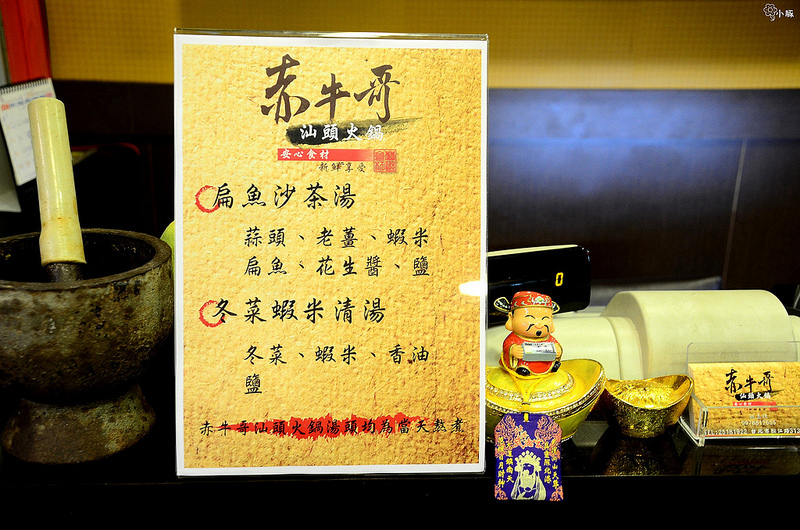 小豚
赤牛哥
汕頭火鍋
安心食材
新鮮享受
扁魚沙茶湯
蒜頭、老薑、蝦米
扁魚、花生醬、鹽
冬菜蝦米清湯
冬菜、蝦米、香油
鹽
赤牛哥汕頭火鍋湯頭均為當天熬煮
0
赤牛哥
汕頭火鍋
安心食材